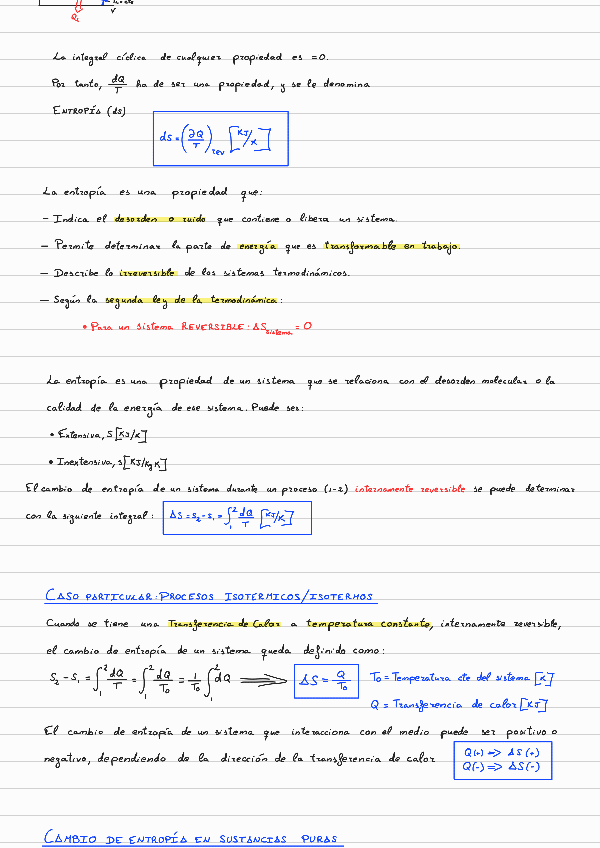 La integral cíclica de cualquier propiedad es =0.
Por tanto, dQ/T ha de ser una propiedad, y se le denomina
ENTROPÍA (ds)
ds = (∂Q/T)rev [KJ/K]
La entropía es una propiedad que:
- Indica el desorden o ruido que contiene o libera un sistema.
- Permite determinar la parte de energía que es transformable en trabajo.
- Describe lo irreversible de los sistemas termodinámicos.
- Según la segunda ley de la termodinámica:
• Para un sistema REVERSIBLE: ΔSsistema = 0
La entropía es una propiedad de un sistema que se relaciona con el desorden molecular o la
calidad de la energía de ese sistema. Puede ser:
• Extensiva, S [KJ/K]
• Inextensiva, s [KJ/Kg K]
El cambio de entropía de un sistema durante un proceso (1-2) internamente reversible se puede determinar
con la siguiente integral: ΔS = S₂ - S₁ = ∫₁² dQ/T [KJ/K]
CASO PARTICULAR: PROCESOS ISOTÉRMICOS/ISOTERMOS
Cuando se tiene una Transferencia de Calor a temperatura constante, internamente reversible,
el cambio de entropía de un sistema queda definido como:
S₂ - S₁ = ∫₁² dQ/T = ∫₁² dQ/T₀ = 1/T₀ ∫₁² dQ ⟹ ΔS = Q/T₀ T₀ = Temperatura cte del sistema [K]
Q = Transferencia de calor [KJ]
El cambio de entropía de un sistema que interacciona con el medio puede ser positivo o
negativo, dependiendo de la dirección de la transferencia de calor
Q(+) => ΔS(+)
Q(-) => ΔS(-)
CAMBIO DE ENTROPÍA EN SUSTANCIAS PURAS